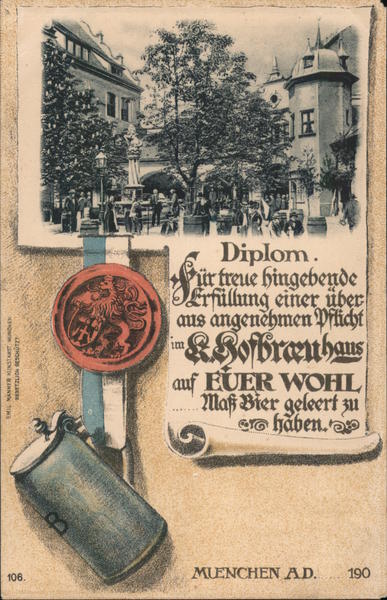 Diplom.
Für treue hingebende
Erfüllung einer über
aus angenehmen Pflicht
im K. Hofbræuhaus
auf EUER WOHL
...... Maß Bier geleert zu
haben.
EMIL MANNER KUNSTANST. MÜNCHEN
GESETZLICH GESCHÜTZT
B
106.
MUENCHEN A.D. ..... 190